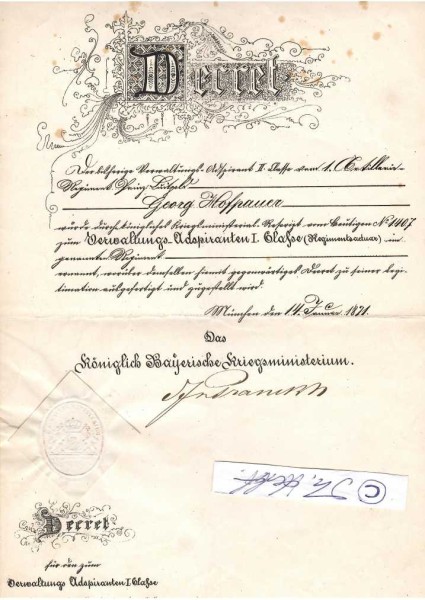 Decret
Der bisherige Verwaltungs-Adspirant II. Classe vom 1. Artillerie-
Regiment Prinz Luitpold
Georg Hofpauer
wurde durch königliches Kriegsministerial-Rescript vom Heutigen Nº 1407
zum Verwaltungs-Adspiranten I. Classe (Regimentsactuar) im
genannten Regiment
ernannt, worüber demselben hiemit gegenwärtiges Decret zu seiner Legi-
timation ausgefertigt und zugestellt wird.
München den 14. Januar 1871.
Das
Königlich Bayerische Kriegsministerium.
©
Decret
für den zum
Verwaltungs Adspiranten I Classe